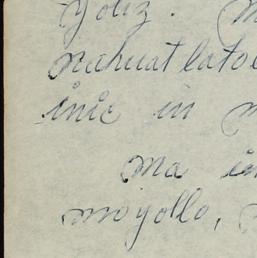 yoliz. 
nahuatlato
inic in
ma in
moyollo,